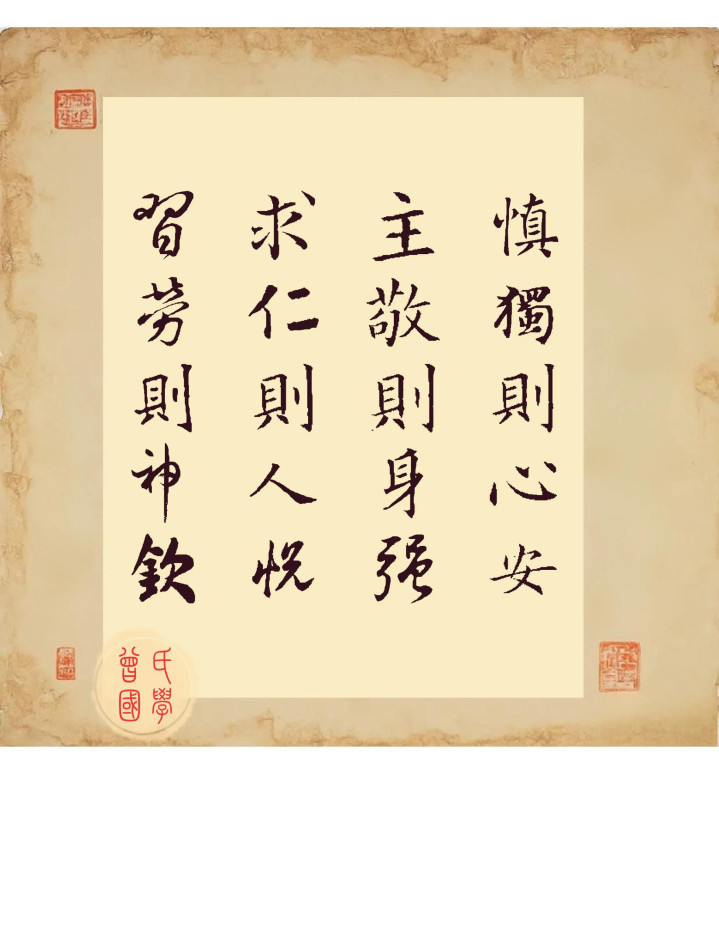 慎獨則心安
主敬則身强
求仁則人悦
習勞則神欽
氏學
曾國